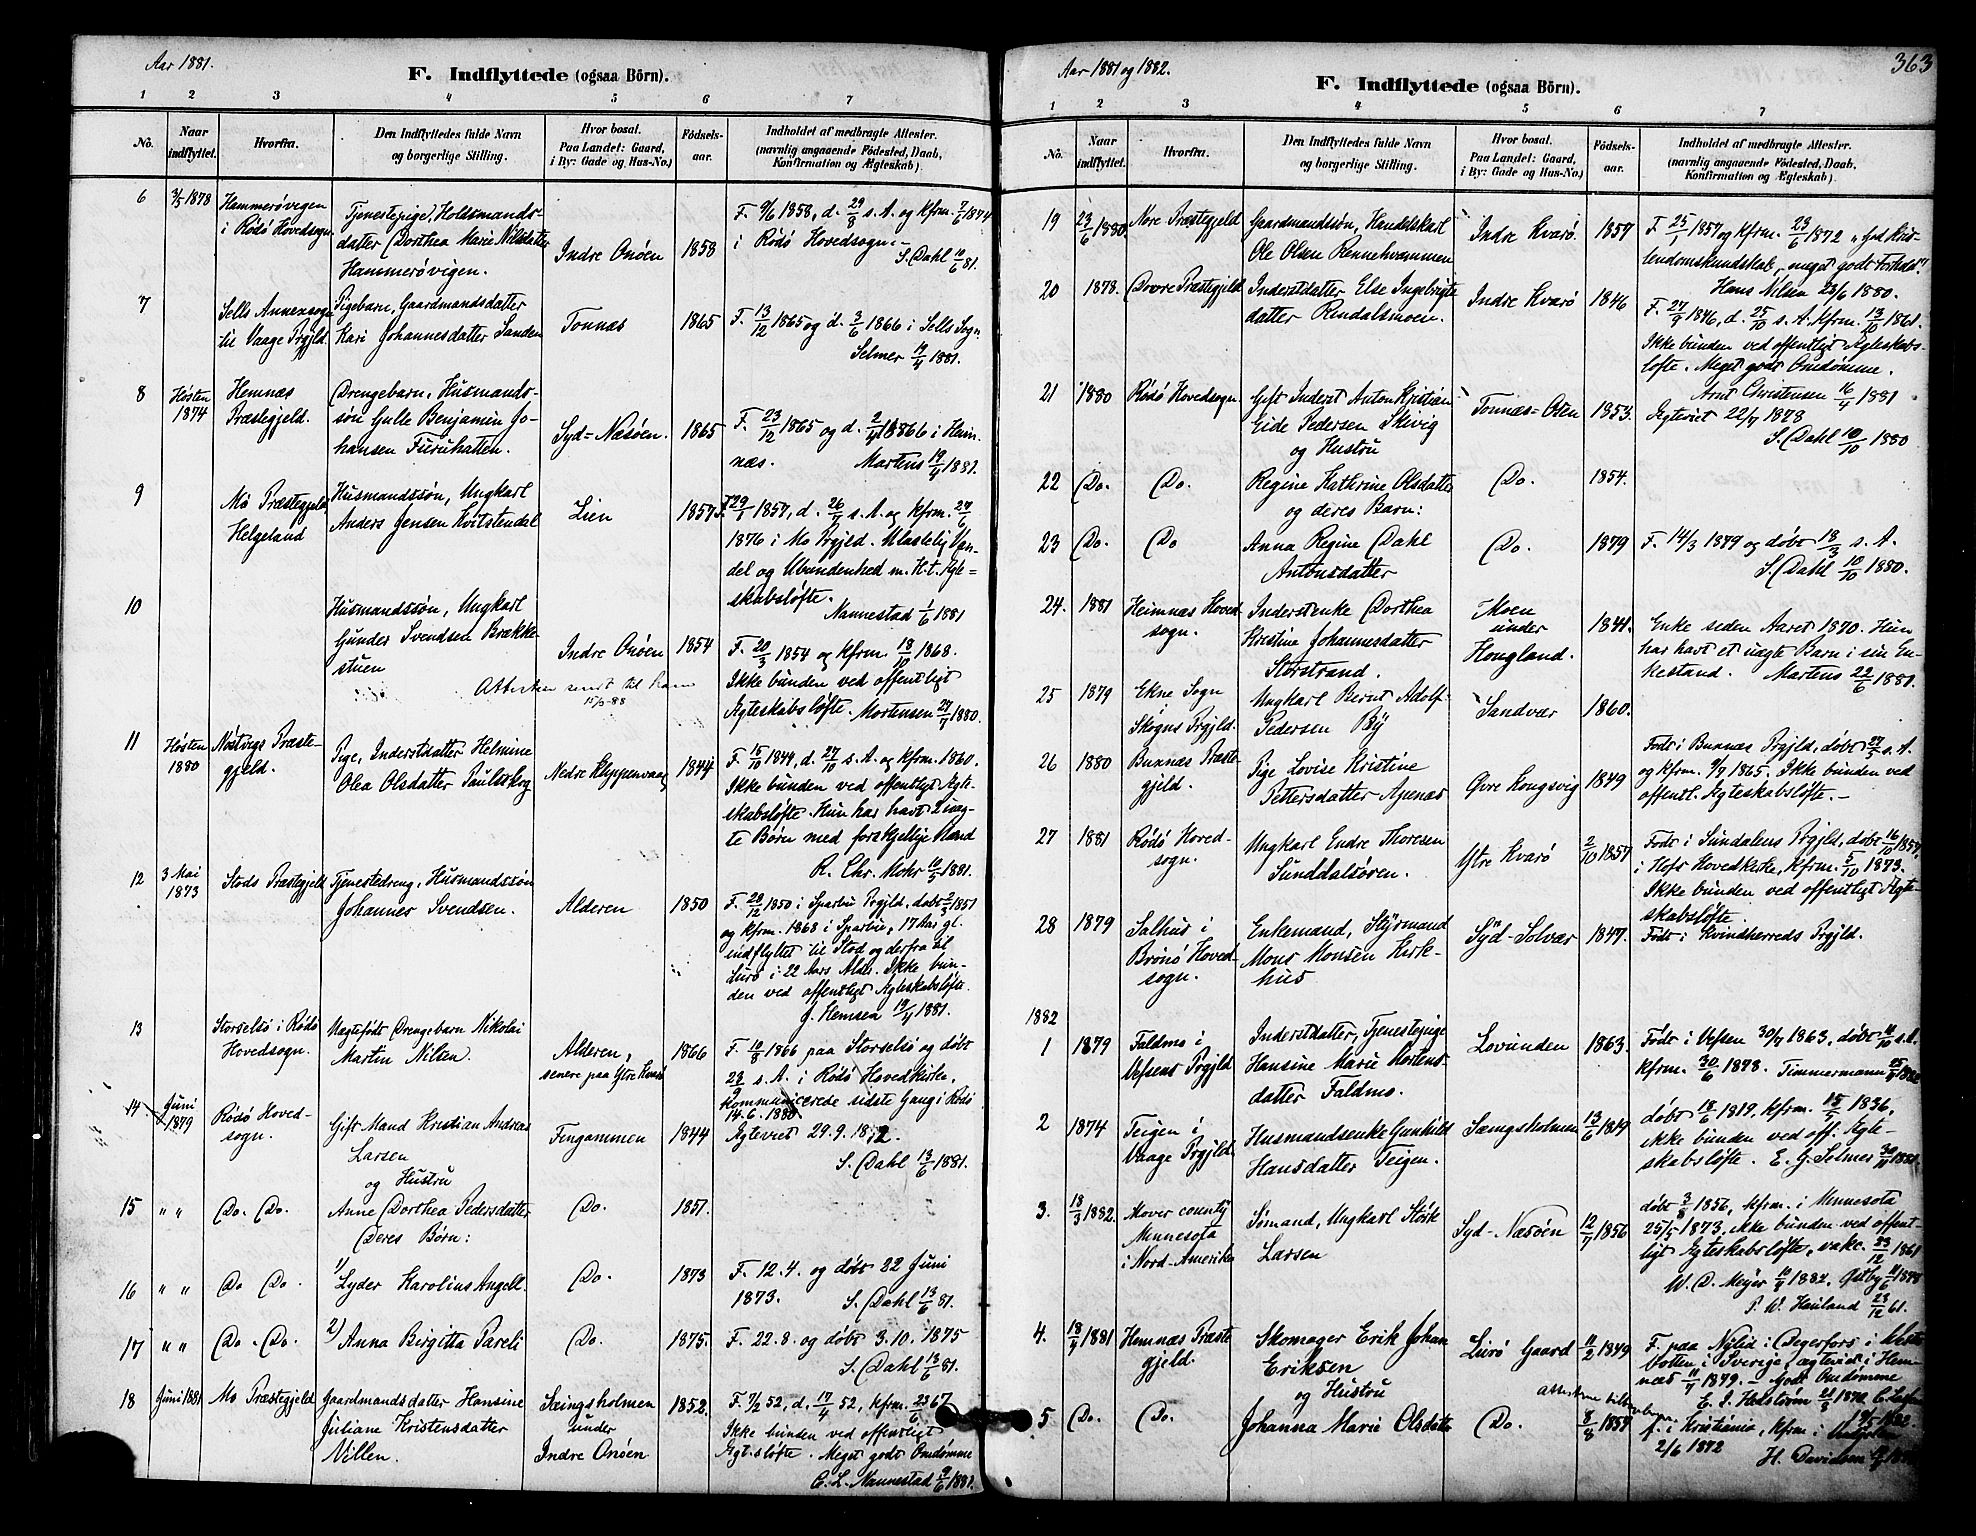 Aar 1881.
F. Indflyttede (ogsaa Börn).
1 2 3 4 5 6 7
No. Naar indflyttet. Hvorfra. Den Indflyttedes fulde Navn og borgerlige Stilling. Hvor bosat. Paa Landet: Gaard, i By: Gade og Hus-No.) Födsels-aar. Indholdet af medbragte Attester. (navnlig angaaende Födested, Daab, Konfirmation og Ægteskab).
6 3/5 1878 Hammerövigen i Rödö Hovedsogn Tjenestepige, Holdsmands-
datter Dorthea Marie Nilsdatter
Hammerövigen. Indre Onöen 1858
F. 9/6 1858, d. 29/8 s. A. og kfrm. 7/6 1874
i Rödö Hovedsogn.-
S. Dahl 10/6 81.
7 Sells Annexsogn til Vaage Prgjld. Pigebarn, Gaardmandsdatter
Kari Johannesdatter Sanden Tonnæs 1865
F. 13/12 1865 og d. 3/6 1866 i Sells Sogn.
Selmer 19/4 1881.
8 Hösten 1874 Hemnæs Præstegjeld. Drengebarn, Husmands-
sön Gulle Benjamin Jo-
hansen Furuhatten. Syd-Næsöen. 1865
F. 23/12 1865 og d. 2/4 1866 i Hem-
næs. Martens 19/4 1881.
9 Mo Præstegjeld Helgeland Husmandssön, Ungkarl
Anders Jensen Kvitstendal Lien 1857
F. 29/1 1857, d. 26/7 s. A. og kfrm. 27/6
1876 i Mo Prgjld. Ulastelig Van-
del og Ubundenhed m. H. t. Ægte-
skabslöfte.
Nannestad 1/6 1881
10 Husmandssön, Ungkarl
Gunder Svendsen Brække-
stuen Indre Onöen 1854
F. 20/3 1854 og kfrm. 18/10 1868.
Ikke bunden ved offentligt
Ægteskabslöfte. Mortensen 27/7 1880.
Attesten sendt til ham
15/3-88
11 Hösten 1880 Næstvigs Præste-gjeld. Pige, Inderstdatter Helmine
Olea Olsdatter Paulsskog Nedre Kleppenvaag 1844
F. 15/10 1844, d. 27/10 s. A. og kfrm. 1860.
Ikke bunden ved offentligt Ægte-
skabslöfte. Hun har havt 2 uæg-
te Börn med forskjellige Mænd
R. Chr. Mohr 10/5 1881.
12 3 Mai 1873 Stods Præstegjeld Tjenestedreng, Husmandssön
Johannes Svendsen. Alderen 1850
F. 20/12 1850 i Sparbu Prgjld, döbt 2/3 1851
og kfrm. 1868 i Sparbu, 17 Aar gl.
indflyttet til Stod og derfra til
Lurö i 22 Aars Alder. Ikke bun-
den ved offentligt Ægteskabslöfte.
J. Hemsen 19/4 1881.
13 Storselsö i Rödö Hovedsogn. Uægtefödt Drengebarn Nikolai
Martin Nilsen. Alderen, senere paa Ytre Kvarö 1866
F. 10/8 1866 paa Storselsö og döbt
23/9 s. A. i Rödö Hovedkirke,
kommunicerede sidste Gang i Rödö
14.6.1880
14 Juni 1879 Rödö Hoved-sogn. Gift Mand Kristian Andreas
Larsen
og Hustru Fingammen 1844
Ægteviet 29.9.1872.
S. Dahl 13/6 1881.
15 " " Do. Do. Anne Dorthea Pedersdatter
Deres Börn: Do. 1851.
16 " " Do Do. 1) Lyder Karolius Angell. Do. 1873
F. 12.4. og döbt 22 Juni
1873. S. Dahl 13/6 81.
17 " " Do. Do. 2) Anna Birgitta Pareli Do. 1875.
F. 22.8. og döbt 3.10. 1875
S. Dahl 13/6 81.
18 Juni 1881 Mo Præstegjeld Gaardmandsdatter Hansine
Juliane Kristensdatter
Villen. Sængsholmen under Indre Onöen 1852.
F. 7/2 52, d. 17/4 52, kfrm. 23/6 67
Ikke bunden ved offentligt
Ægt.slöfte. Meget godt Omdömme
C. L. Nannestad 9/6 1881.
Aar 1881 og 1882.
363
F. Indflyttede (ogsaa Börn).
1 2 3 4 5 6 7
No. Naar indflyttet. Hvorfra. Den Indflyttedes fulde Navn og borgerlige Stilling. Hvor bosat. Paa Landet: Gaard, i By: Gade og Hus-No.) Födsels-aar. Indholdet af medbragte Attester. (navnlig angaaende Födested, Daab, Konfirmation og Ægteskab).
19 23/6 1880 Nore Præstegjeld Gaardmandssön, Handelskarl
Ole Olsen Rennehvammen Indre Kvarö. 1857
F. 25/1 1857 og kfrm. 23/6 1872 „God Kris-
tendomskundskab, meget godt Forhold".
Hans Nilsen 23/6 1880.
20 1878. Dovre Præstegjeld Inderstdatter Else Ingebrigts-
datter Rindalsmoen. Indre Kvarö 1846
F. 27/9 1846, d. 25/10 s. A. kfrm. 13/10 1861.
Ikke bunden ved offentligt Ægteskabs-
löfte. Meget godt Omdömme.
Arnt Christensen 16/4 1881
21 1880 Rödö Hovedsogn. Gift Inderst Anton Kristian
Eide Pedersen Skivig
og Hustru Tonnæs-Osen 1853.
Ægteviet 22/7 1878
S. Dahl 10/10 1880
22 Do. Do. Regine Kathrine Olsdatter
og deres Barn: Do. 1854.
23 Do. Do Anna Regine Dahl
Antonsdatter Do. 1879
F. 14/3 1879 og döbt 18/3 s. A.
S. Dahl 10/10 1880.
24. 1881 Hemnæs Hoved-sogn. Inderstenke Dorthea
Kristine Johannesdatter
Storstrand. Moen under Hougland. 1841.
Enke siden Aaret 1870. Hun
har havt et uægte Barn i sin En-
kestand. Martens 22/6 1881.
25 1879 Ekne Sogn i Skogns Prgjld. Ungkarl Bernt Adolf
Pedersen By Sandvær 1860.
26 1880 Buxnæs Præste-gjeld. Pige Lovise Kristine
Pettersdatter Apenæs Övre Kongsvig 1849
Födt i Buxnæs Prgjld, döbt 27/5 s. A.
og kfrm. 9/7 1865. Ikke bunden ved
offentl. Ægteskabslöfte.-
27 1881 Rödö Hoved-sogn. Ungkarl Endre Thoresen
Sunddalsören. Ytre Kvarö 2/10 1857
Födt i Sundalens Prgjld, döbt 16/10 1857,
i Hofs Hovedkirke, kfrm. 5/10 1873.
Ikke bunden ved offentligt Ægte-
skabslöfte.
28 1879 Salhus i Brönö Hoved-sogn. Enkemand, Styrmand
Mons Monsen Kirk-
hus Syd-Solvær 1847.
Födt i Kvindherreds Prgjld.
1882
1 1879 Faldmo i Vefsens Prgjld Inderstdatter, Tjenestepige
Hansine Marie Mortens-
datter Faldmo. Lovunden 1863.
Födt i Vefsen 30/7 1863, döbt 11/10 s. A.
kfrm. 30/6 1878. Timmermann
2 1874 Teigen i Vaage Prgjld. Husmandsenke Gunhild
Hansdatter Teigen. Sængsholmen 13/6 1819
döbt 18/6 1819, kfrm. 15/5 1836,
ikke bunden ved off. Ægte-
skabslöfte. E. G. Selmer 30/11 1881.
3. 18/3 1882. Mover county Minnesota i Nord-Amerika Sömand, Ungkarl Störk
Larsen Syd-Næsöen 12/7 1856
döbt 3/8 1856, kfrm. i Minnesota
25/5 1873, ikke bunden ved offent-
ligt Ægteskabslöfte, vakc. 23/12 1861
W. D. Meyer 10/4 1882. Östby 11/6 1878
P. W. Hauland 23/12 61.
4. 18/4 1881 Hemnæs Præste-gjeld. Skomager Erik Johan
Eriksen
og Hustru Lurö Gaard 11/2 1849
F. paa Nylid i Degerfors i
Botten i Sverige, ægteviet i Hem-
næs 11/7 1879. - Godt Omdömme
E. J. Hedström
5 Do. Do. Johanna Marie Olsdatter Do. 8/8 1857
f. i Kristiania, kfrm. i
2/6 1872
H. Davidsen